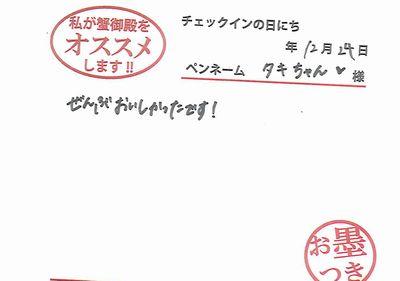 私が蟹御殿を
オススメ
します!!
チェックインの日にち
年 12月 29日
ペンネーム タキちゃん♥様
ぜんぶおいしかったです!
お墨
つき